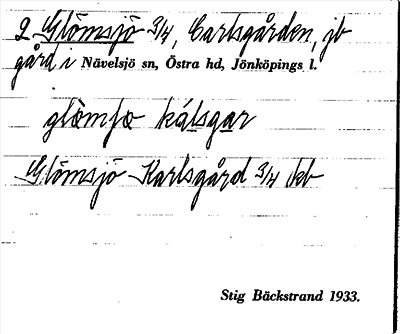 2 Glömsjö 3/4, Carlsgården, jb
gård i Nävelsjö sn, Östra hd, Jönköpings l.
glömʃœ kálsgar
Glömsjö Karlsgård 3/4 kb
Stig Bäckstrand 1933.